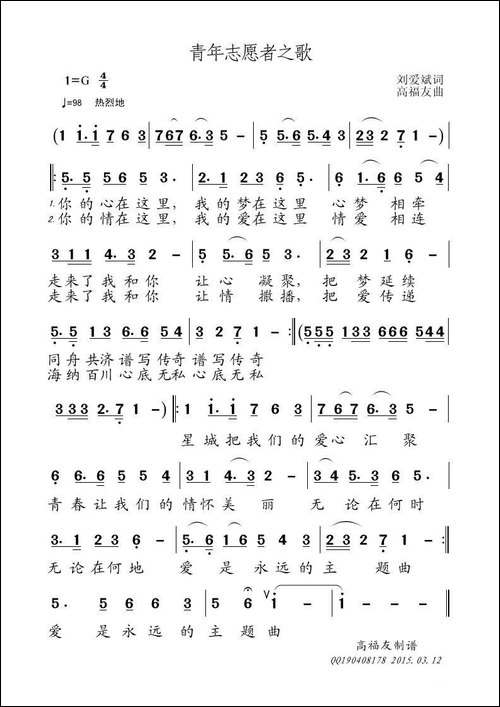 青年志愿者之歌
1=G 4/4
刘爱斌词
高福友曲
♩=98 热烈地
(1 i. i 7 6 3 | 7 6 7 6. 3 5 - | 5 5. 6 5. 4 3. | 2 3 2 7 1 - )
5. 5 5 6 5 3. | 2. 1 2 4 3 5 - | 6 1. 6 6 5 4
1. 你的心在这里, 我的梦在这里 心梦相牵
2. 你的情在这里, 我的爱在这里 情爱相连
3 1 1 4. 3 2 - | 5 5. 6 5 3. | 2 3 2 1 6 -
走来了我和你 让心 凝聚, 把 梦延续
走来了我和你 让情 撒播, 把 爱传递
5. 5 1 3 6. 6 5 4 | 3 2 7 1 - :‖(5 5 5 1 3 3 6 6 6 5 4 4
同舟共济谱写传奇 谱写传奇
海纳百川心底无私心底无私
3 3 3 2. 7 1 - )‖: 1 i. i 7 6 3 | 7 6 7 6. 3 5 -
星城把我们的爱心汇聚
6 6. 5 5 4 | 3 1 4. 3 2 - | 2 3 2. 3 6 5.
青春让我们的情怀美丽 无论在何时
5. 6 1 2 3 - | 5 6. 5 4 3. | 2 3 2 7 1 - :‖
无论在何地 爱是永远的主题曲
5. 5 6. 5 4 3. | 2 3 2 7 i - | i - i -
爱是永远的主题曲
高福友制谱
QQ190408178 2015.03.12